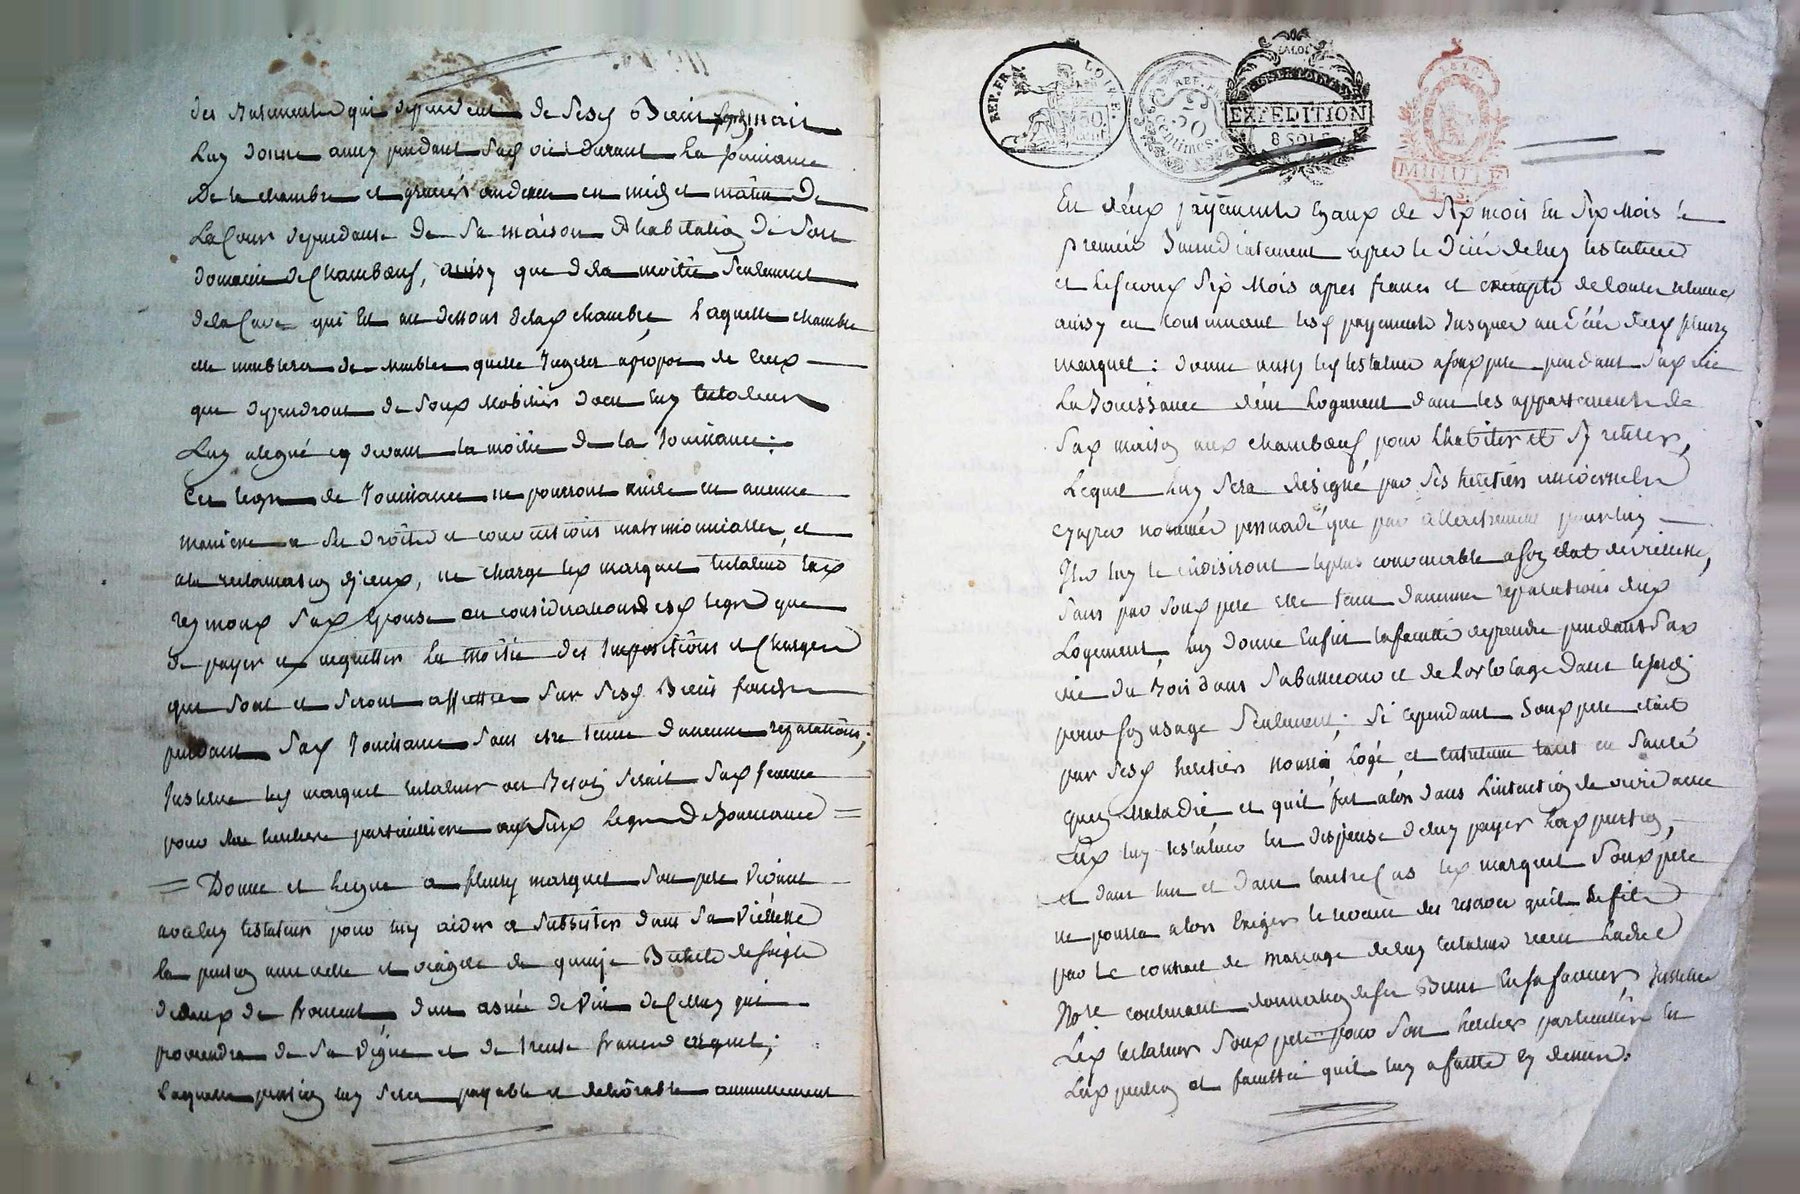 des qui dependent de Sesd Biens
luy donne aussy pendant Sad vie durant la jouissance
De la chambre et grenier en midy et matin De
La Cour dependante De Sa maison D'habitation de Son
domaine de Chambœuf, aussy que de la moitié Seulement
de la Cave qui Est au dessous de lad chambre, Laquelle chambre
elle meublera de meubles quelle Jugera apropos de Ceux
que dependront de Soud Mobilier dont led testateur
Luy a legué cy devant la moitié de la Jouissance;
Ces legs de Jouissance ne pourront nuire en aucune
maniere a Ses droits et conventions matrimonialles, et
a la reclamation d'jceux, ne charge led marquet testateur lad
reymond Sad Epouse en consideration desd legs que
de payer et acquitter la moitié des Impositions et Charges
qui Sont et Seront assettées Sur Sesd Biens fonds
pendant Sad Jouissance Sans etre tenue d'aucune reparations;
Institue led marquet testateur au Besoin Serait Sad femme
pour Son heritiere particulliere auxd Legs De Jouissance =
= Donne et Legue a fleury marquet Son pere vivant
avec luy testateur pour luy aider a Subsister dans Sa Viellesse
la pension annuelle et viagere de quinze Bichets de Seigle
de deux de froment, d'un asnée de Vin de Celluy qui
proviendra de Sa Vigne et de trente francs argent;
Laquelle pension luy Sera payable et delivrable annuellement
REP. FRA. LOIRE.
50
REP. FRA.
50
Centimes.
EXPEDITION
8 SOLS
MINUTE
En deux payements Egaux de Six mois En Six Mois le
premier Immediatement apres le décés de luy testateur
et le Second Six Mois apres francs et exempts de toutes retenues
aussy en Continuant lesd payements Jusques au décés dud fleury
marquet: donne aussy led testateur a Soud pere pendant Sad vie
La Jouissance d'un Logement dans les appartements de
Sad maison aud chambœuf pour l'habiter et S'y retirer,
Lequel luy Sera désigné par Ses héritiers universels
cy apres nommés persuadé que par attachement pour luy
Ils luy le choisiront le plus convenable a Son état de viellesse,
Sans par Soud pere etre tenu d'aucune reparations dud
Logement, luy donne Enfin la faculté de prendre pendant Sad
vie du Bois dans et de L'ortolage dans le Jardin
pour Son usage Seulement; Si cependant Soud pere etait
par Sesd heritiers nourri, Logé, et entretenu tant en Santé
quen Maladie et quil fut alors dans L'intention de vivre avec
Eux luy testateur les dispense de luy payer lad pension,
et dans lun et dans l'autre Cas led marquet Soud pere
ne pourra alors Exiger le revenu des reserves quil Se fit
par le contrat de mariage de luy testateur receu
Nore contenant donnation de Ses Biens En Sa faveur, Institue
Led testateur Soud pere pour Son heritier particullier En
Lad pension et faculté quil luy a faitte cy dessus;